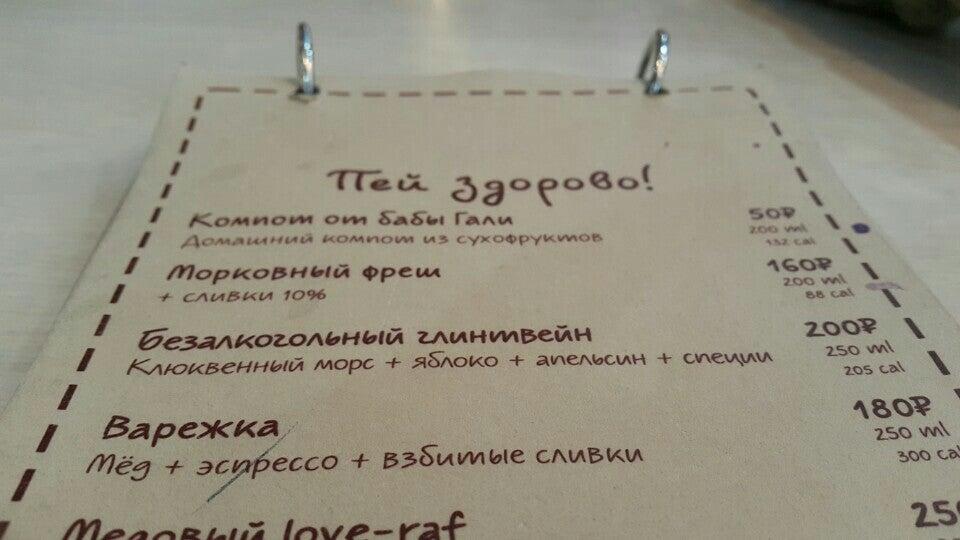 Пей здорово!
Компот от бабы Гали 50₽
Домашний компот из сухофруктов 200 ml
132 cal
Морковный фреш 160₽
+ сливки 10% 200 ml
88 cal
Безалкогольный глинтвейн 200₽
Клюквенный морс + яблоко + апельсин + специи 250 ml
205 cal
Варежка 180₽
Мёд + эспрессо + взбитые сливки 250 ml
300 cal
Медовый love-raf 250